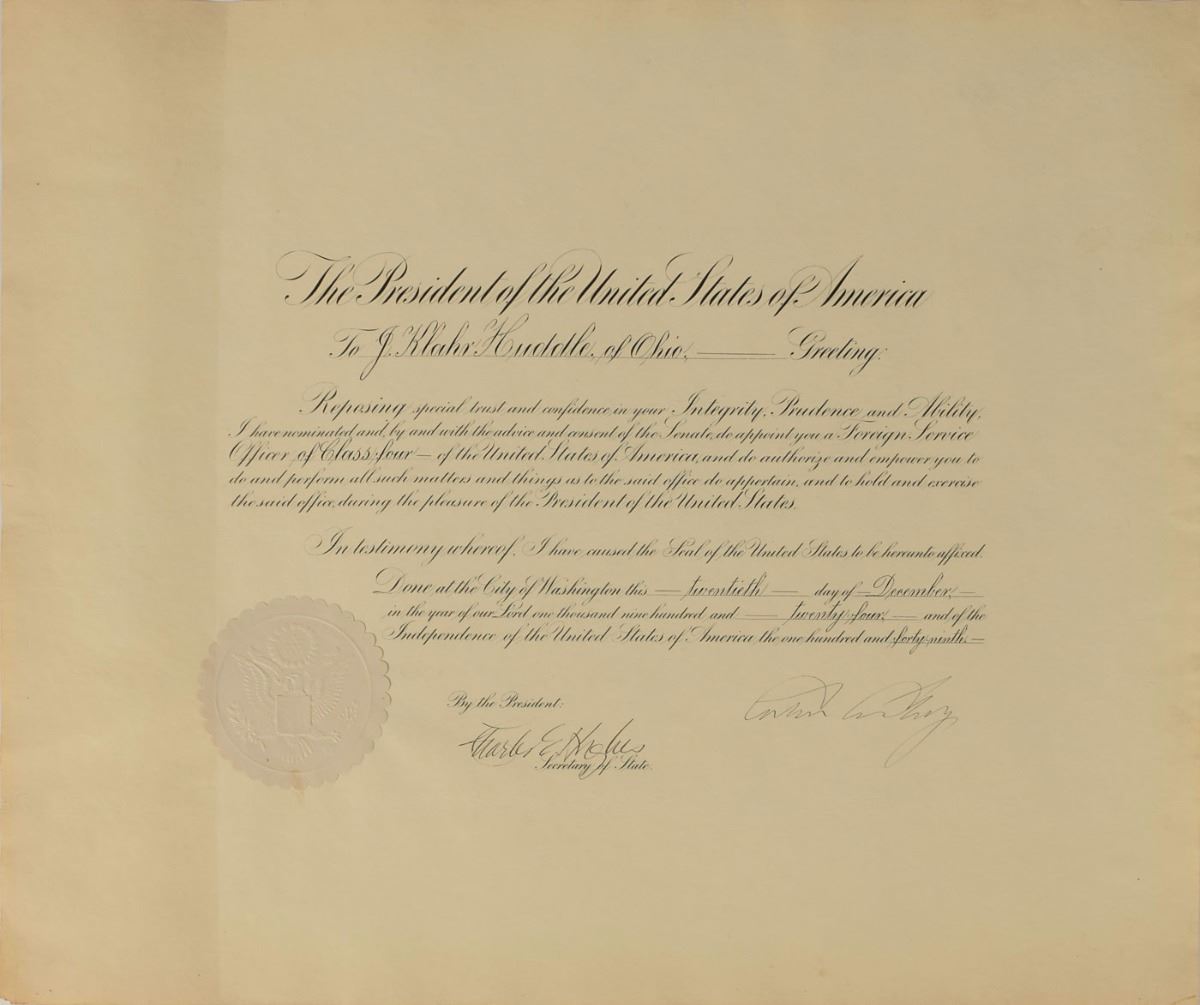 The President of the United States of America
To J. Klahr Huddle, of Ohio, Greeting:
Reposing special trust and confidence in your Integrity, Prudence and Ability,
I have nominated and, by and with the advice and consent of the Senate, do appoint you a Foreign Service
Officer of Class four of the United States of America, and do authorize and empower you to
do and perform all such matters and things as to the said office do appertain, and to hold and exercise
the said office, during the pleasure of the President of the United States.
In testimony whereof, I have caused the Seal of the United States to be hereunto affixed.
Done at the City of Washington this twentieth day of December,
in the year of our Lord one thousand nine hundred and twenty four, and of the
Independence of the United States of America, the one hundred and forty-ninth.
By the President:
Charles E. Hughes
Secretary of State.